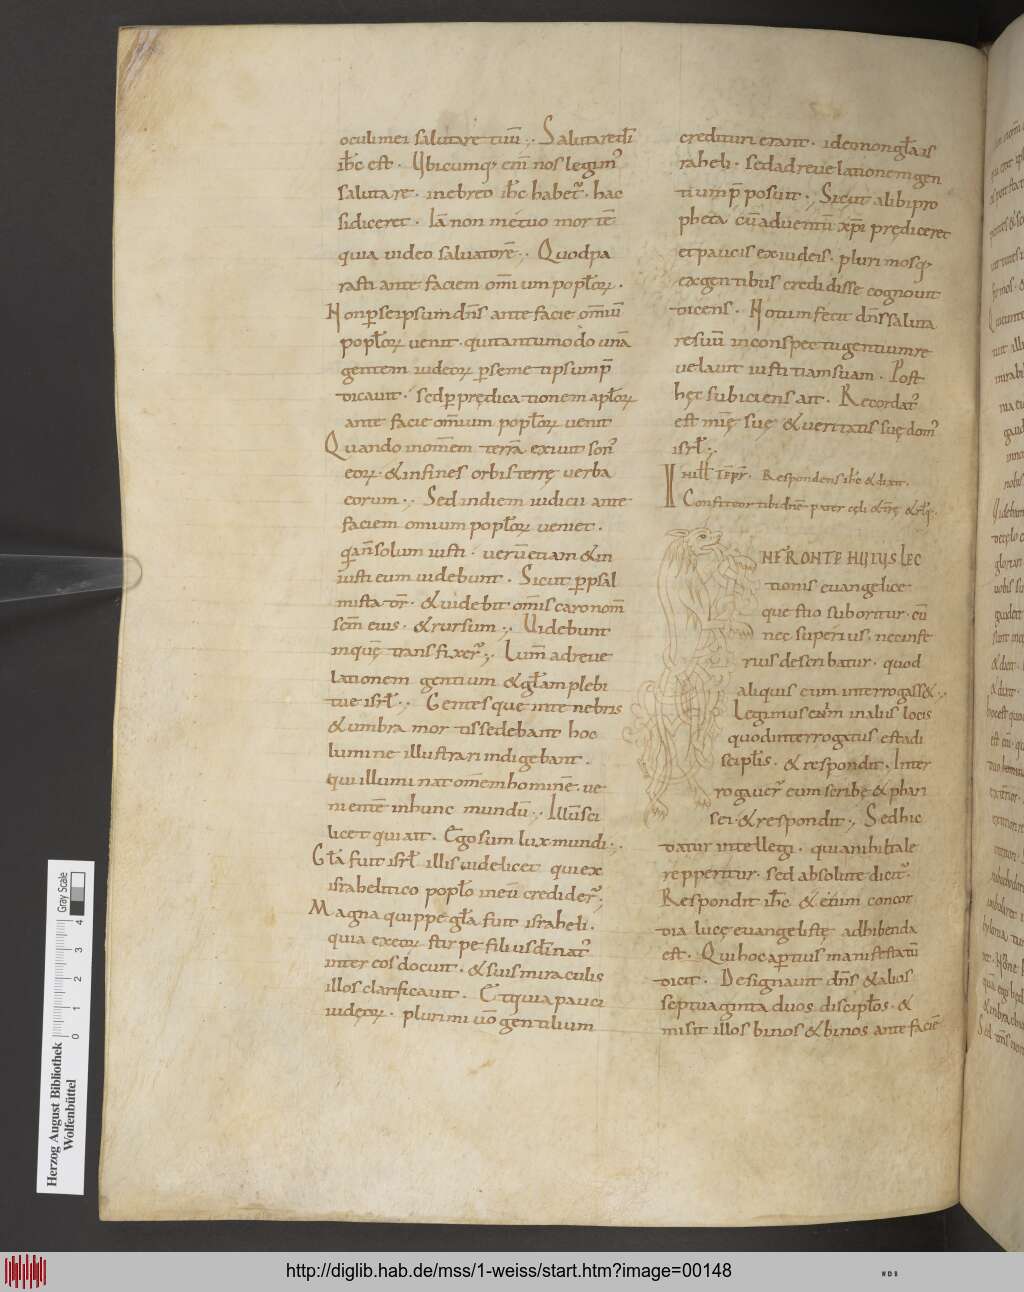 oculi mei salutare tuū. Salutare dī
ihc est. Ubicumq; em̄ nos legim᾽
salutare. in ebreo ihc habet᷑. hac
si diceret. Iā non metuo mortē
quia uideo saluatorē. Quod pa
rasti ante faciem om̄ium popl̄oꝝ.
Non ꝑ se ipsum dn̄s ante facie om̄iū
popl̄oꝝ uenit. qui tantumodo unā
gentem iudeoꝝ ꝑ semetipsum p̄
dicauit. sed ꝑ prędicationem apl̄oꝝ
ante facie om̄ium popl̄oꝝ uenit
Quando in om̄em terrā exiuit son᾽
eoꝝ. & in fines orbis terrę uerba
eorum. Sed in diem iudicii ante
faciem omium popl̄oꝝ ueniet.
iusti eum uidebunt. Sicut ꝑ psal
mista
scm̄ eius. & rursum. Uidebunt
in quē transfixer᷑. Lum̄ ad reue
lationem gentium & gl̄am plebi
tue isrl̄. Gentes que in tenebris
& umbra mortis sedebant hoc
lumine illustrari indigebant.
qui illuminat om̄em hominē ue
nientē in hunc mundū. Illūsci
licet qui ait. Ego sum lux mundi.
Gl̄a fuit isrl̄ illis uidelicet qui ex
israhelitico popl̄o in eū credider᷑.
Magna quippe gl̄a fuit israheli.
quia ex eoꝝ stirpe filius dī nat᾽
inter eos docuit. & suis miraculis
illos clarificauit. Et quia pauci
iudęoꝝ. plurimi ūo gentilium
credituri erant. ideo non gl̄a is
raheli. sed ad reuelationem gen
tium p̄posuit. Sicut alibi pro
pheta cū aduentū xp̄i prędiceret
et paucis ex iudeis. plurimosq;
ex gentibus credidisse cognouit
dicens. Notum fecit dn̄s saluta
re suū in conspectu gentium re
uelauit iustitiam suam. Post
hęc subiciens ait. Recordat᾽
est mīę suę & ueritatis suę dom᾽
isrl̄.
IN ILL̄ T̄EPR̄. Respondens ihc & dixit.
Confiteor tibi dn̄e pater cęli & tr̄ę & rl̄q̄.
IN FRONTE HUIUS LEC
tionis euangelice
questio suboritur. cū
nec superius. nec infe
rius describatur. quod
aliquis eum interrogass&.
Legimus enim in aliis locis
quod interrogatus est a di
scipl̄is. & respondit. Inter
rogauer᷑ eum scribę & phari
sei. & respondit. Sed hic
datur intellegi. quia nihil tale
repperitur. sed absolute dicit᷑.
Respondit ihc & enim concor
dia lucę euangelistę adhibenda
est. Qui hoc aꝑtius manifestatū
dicit. Designauit dn̄s & alios
septuaginta duos discipl̄os. &
misit illos binos & binos ante faciē
Herzog August Bibliothek
Wolfenbüttel
0 1 2 3 4
Gray Scale
http://diglib.hab.de/mss/1-weiss/start.htm?image=00148